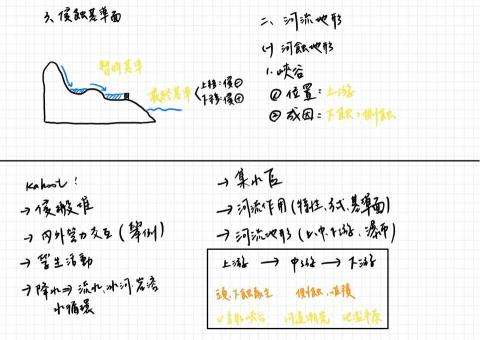 3、侵蝕基準面
暫時基準
最終基準
上移:侵⊖
下移:侵⊕
二、河流地形
㈠ 河蝕地形
1. 峽谷
① 位置:上游
② 成因:下蝕>側蝕
Kahoot:
→ 侵搬堆
→ 內外營力交互(舉例)
→ 營生活動
→ 降水⇒流水、冰河、岩溶
水循環
→ 集水區
→ 河流作用(特性、方式、基準面)
→ 河流地形(上中下游、瀑布)
上游 → 中游 → 下游
向源、下蝕產生 側蝕、堆積
V型峽谷 河道漸寬 沖積平原